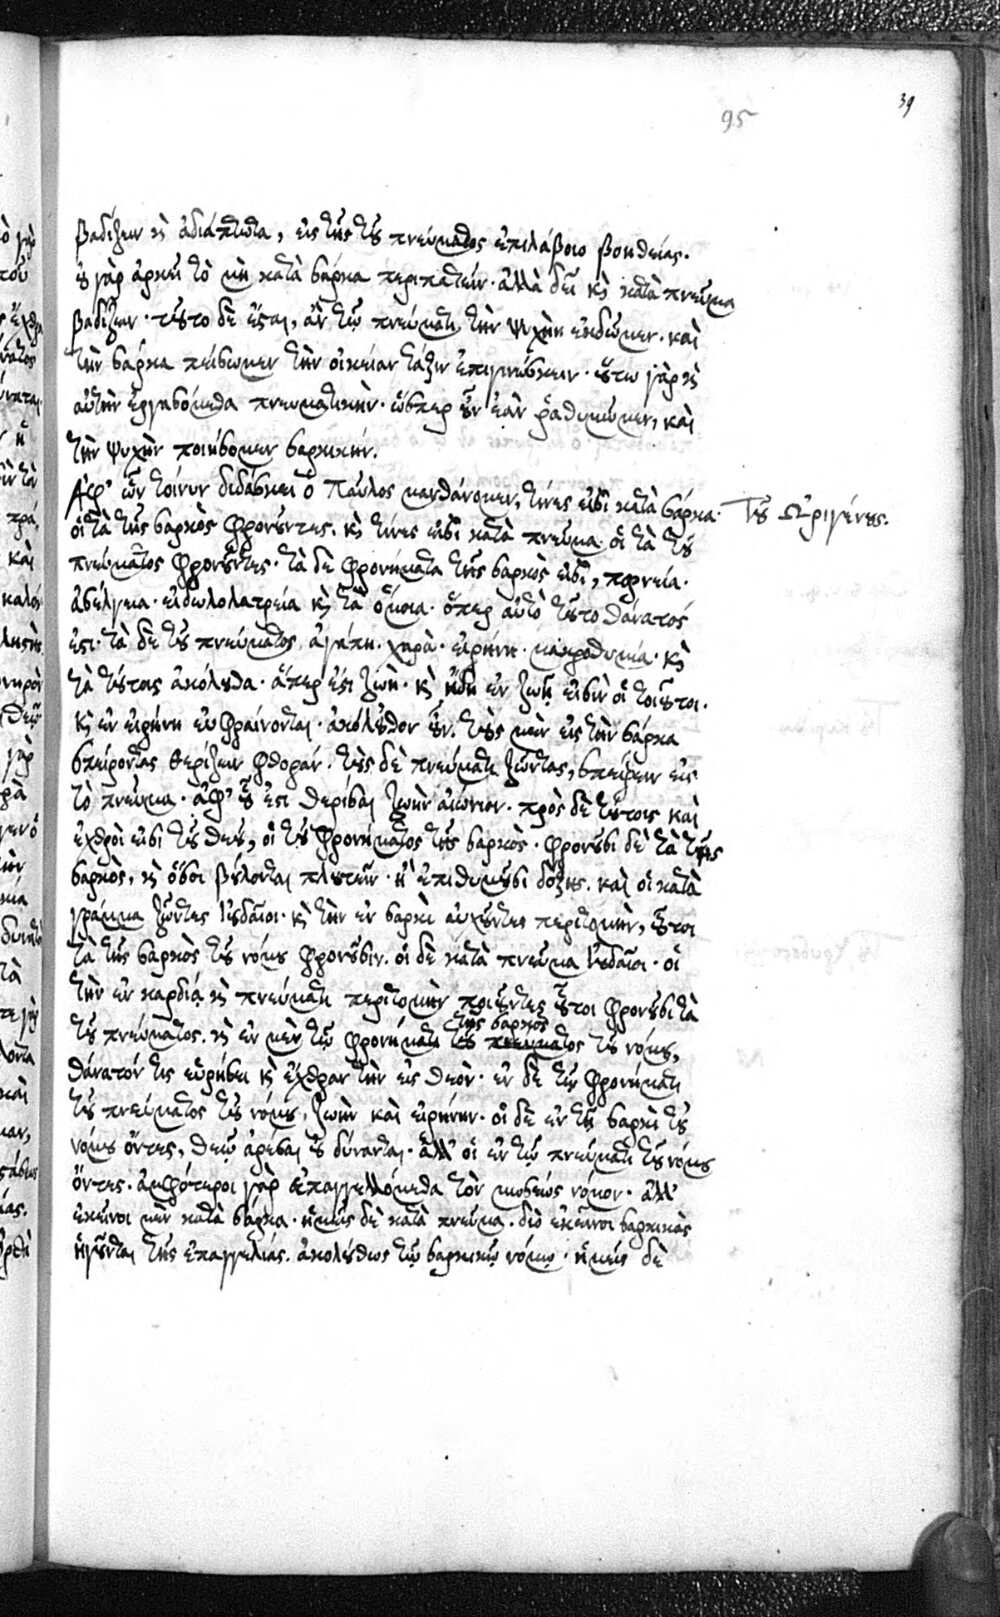 39
95
βαδίζειν κ̀ ἀδιάπτωτα, εἰς τῆς τοῦ πνεύματος ἐπιλάβοιο βοηθείας.
οὐ γὰρ ἀρκεῖ τὸ μὴ κατὰ σάρκα περιπατεῖν· ἀλλὰ δεῖ κ̀ κατὰ πνεῦμα
βαδίζειν· τοῦτο δὲ ἔσται, ἂν τῷ πνεύματι τὴν ψυχὴν ἐκδῶμεν· καὶ
τὴν σάρκα πείσωμεν τὴν οἰκείαν τάξιν ἐπιγινώσκειν· οὕτω γὰρ κ̀
αὐτὴν ἐργασόμεθα πνευματικήν· ὥσπερ οὖν ἐὰν ῥαθυμῶμεν, καὶ
τὴν ψυχὴν ποιήσομεν σαρκικήν.
Ἀφ' ὧν τοίνυν διδάσκει ὁ Παῦλος μανθάνομεν, τίνες εἰσὶ κατὰ σάρκα· Τοῦ Ὠριγένους.
οἱ τὰ τῆς σαρκὸς φρονοῦντες. κ̀ τίνες εἰσὶ κατὰ πνεῦμα· οἱ τὰ τοῦ
πνεύματος φρονοῦντες· τὰ δὲ φρονήματα τῆς σαρκὸς εἰσὶ, πορνεία·
ἀσέλγεια· εἰδωλολατρεία κ̀ τὰ ὅμοια· ὅπερ αὐτὸ τοῦτο θάνατός
ἐστι· τὰ δὲ τοῦ πνεύματος ἀγάπη· χαρὰ· εἰρήνη· μακροθυμία· κ̀
τὰ τούτοις ἀκόλουθα· ἅπερ ἐστὶ ζωὴ· κ̀ ἤδη ἐν ζωῇ εἰσὶν οἱ τοιοῦτοι·
κ̀ ἐν εἰρήνῃ εὐφραίνονται· ἀκόλουθον οὖν· τοὺς μὲν εἰς τὴν σάρκα
σπείροντας θερίζειν φθοράν· τοὺς δὲ πνεύματι ζῶντας, σπείρειν εἰς
τὸ πνεῦμα· ἀφ' οὗ ἐστι θερίσαι ζωὴν αἰώνιον· πρὸς δὲ τούτοις καὶ
ἐχθροὶ εἰσι τοῦ θεοῦ, οἱ τοῦ φρονήματος τῆς σαρκὸς· φρονοῦσι δὲ τὰ τῆς
σαρκὸς, κ̀ ὅσοι βούλονται πλουτεῖν· ἢ ἐπιθυμοῦσι δόξης. καὶ οἱ κατὰ
γράμμα ζῶντες Ἰουδαῖοι· κ̀ τὴν ἐν σαρκὶ αὐχοῦντες περιτομὴν, οὗτοι
τὰ τῆς σαρκὸς τοῦ νόμου φρονοῦσιν. οἱ δὲ κατὰ πνεῦμα Ἰουδαῖοι· οἱ
τὴν ἐν καρδίᾳ κ̀ πνεύματι περιτομὴν ποιοῦντες οὗτοι φρονοῦσι τὰ
τοῦ πνεύματος. κ̀ ἐν μὲν τῷ φρονήματι τῆς σαρκὸς τοῦ νόμου,
θάνατόν τις εὑρήσει κ̀ ἔχθραν τὴν εἰς θεὸν· ἐν δὲ τῷ φρονήματι
τοῦ πνεύματος τοῦ νόμου, ζωὴν καὶ εἰρήνην· οἱ δὲ ἐν τῇ σαρκὶ τοῦ
νόμου ὄντες, θεῷ ἀρέσαι οὐ δύνανται· ἀλλ' οἱ ἐν τῷ πνεύματι τοῦ νόμου
ὄντες· ἀμφότεροι γὰρ ἐπαγγελλόμεθα τὸν μωσέως νόμον· ἀλλ'
ἐκεῖνοι μὲν κατὰ σάρκα· ἡμεῖς δὲ κατὰ πνεῦμα. διὸ ἐκεῖνοι σαρκικὰς
ἡγοῦνται τὰς ἐπαγγελίας. ἀκολούθως τῷ σαρκικῷ νόμῳ· ἡμεῖς δὲ